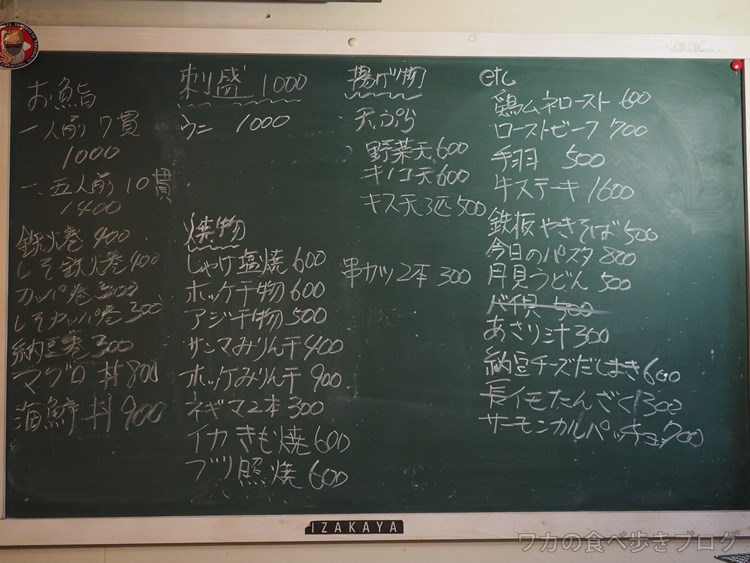 お鮨
一人前 7貫
1000
一.五人前 10貫
1400
鉄火巻 400
しそ鉄火巻 400
カッパ巻 300
しそカッパ巻 300
納豆巻 300
マグロ丼 800
海鮮丼 900
刺盛 1000
ウニ 1000
焼物
しゃけ塩焼 600
ホッケ干物 600
アジ干物 500
サンマみりん干 400
ホッケみりん干 900
ネギマ2本 300
イカきも焼 600
ブリ照焼 600
揚げ物
天ぷら
野菜天 600
キノコ天 600
キス天3匹 500
串カツ2本 300
etc
鶏ムネロースト 600
ローストビーフ 700
手羽 500
牛ステーキ 1600
鉄板やきそば 500
今日のパスタ 800
月見うどん 500
バイ貝 500
あさり汁 300
納豆チーズだしまき 600
長イモたんざく 300
サーモンカルパッチョ 700
IZAKAYA
ワカの食べ歩きブログ